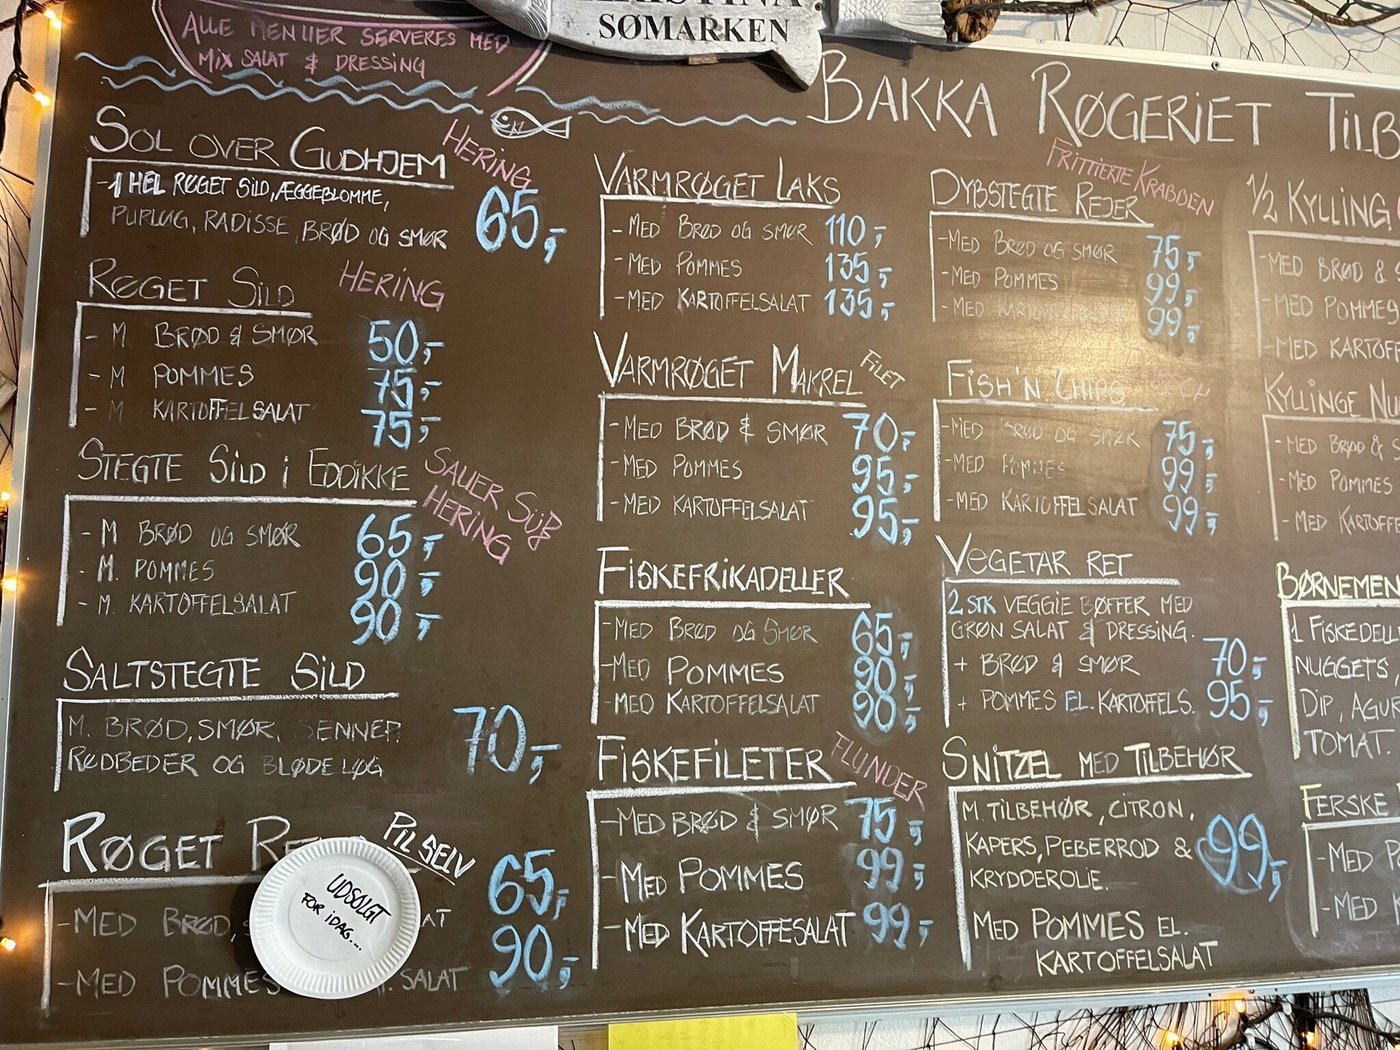 ALLE MENUER SERVERES MED
MIX SALAT & DRESSING
SØMARKEN
BAKKA RØGERIET TILB
SOL OVER GUDHJEM
HERING
- 1 HEL RØGET SILD, ÆGGEBLOMME, 65,-
PURLØG, RADISSE, BRØD OG SMØR
RØGET SILD
HERING
- M BRØD & SMØR 50,-
- M POMMES 75,-
- M KARTOFFELSALAT 75,-
STEGTE SILD I EDDIKKE
SAUER SÜß
HERING
- M BRØD OG SMØR 65,-
- M. POMMES 90,-
- M. KARTOFFELSALAT 90,-
SALTSTEGTE SILD
M. BRØD, SMØR, SENNEP 70,-
RØDBEDER OG BLØDE LØG
RØGET
PIL SELV
- MED BRØD, 65,-
- MED POMMES SALAT 90,-
UDSOLGT
FOR IDAG....
VARMRØGET LAKS
- MED BRØD OG SMØR 110,-
- MED POMMES 135,-
- MED KARTOFFELSALAT 135,-
VARMRØGET MAKREL FILET
- MED BRØD & SMØR 70,-
- MED POMMES 95,-
- MED KARTOFFELSALAT 95,-
FISKEFRIKADELLER
- MED BRØD OG SMØR 65,-
- MED POMMES 90,-
- MED KARTOFFELSALAT 90,-
FISKEFILETER
FLUNDER
- MED BRØD & SMØR 75,-
- MED POMMES 99,-
- MED KARTOFFESALAT 99,-
FRITTIERTE KRABBEN
DYBSTEGTE REJER
- MED BRØD OG SMØR 75,-
- MED POMMES 99,-
- MED KARTOFFELSALAT 99,-
FISH'N CHIPS
- MED BRØD OG SMØR 75,-
- MED POMMES 99,-
- MED KARTOFFELSALAT 99,-
VEGETAR RET
2 STK VEGGIE BØFFER MED
GRØN SALAT & DRESSING.
+ BRØD & SMØR 70,-
+ POMMES EL. KARTOFFELS. 95,-
SNITZEL MED TILBEHØR
M. TILBEHØR, CITRON, 99,-
KAPERS, PEBERROD &
KRYDDEROLIE.
MED POMMES EL.
KARTOFFELSALAT
1/2 KYLLING
- MED BRØD &
- MED POMMES
- MED KARTOF
KYLLINGE NU
- MED BRØD & S
- MED POMMES
- MED KARTOFFE
BØRNEMEN
1 FISKEDELL
NUGGETS,
DIP, AGUR
TOMAT.
FERSKE
- MED P
- MED